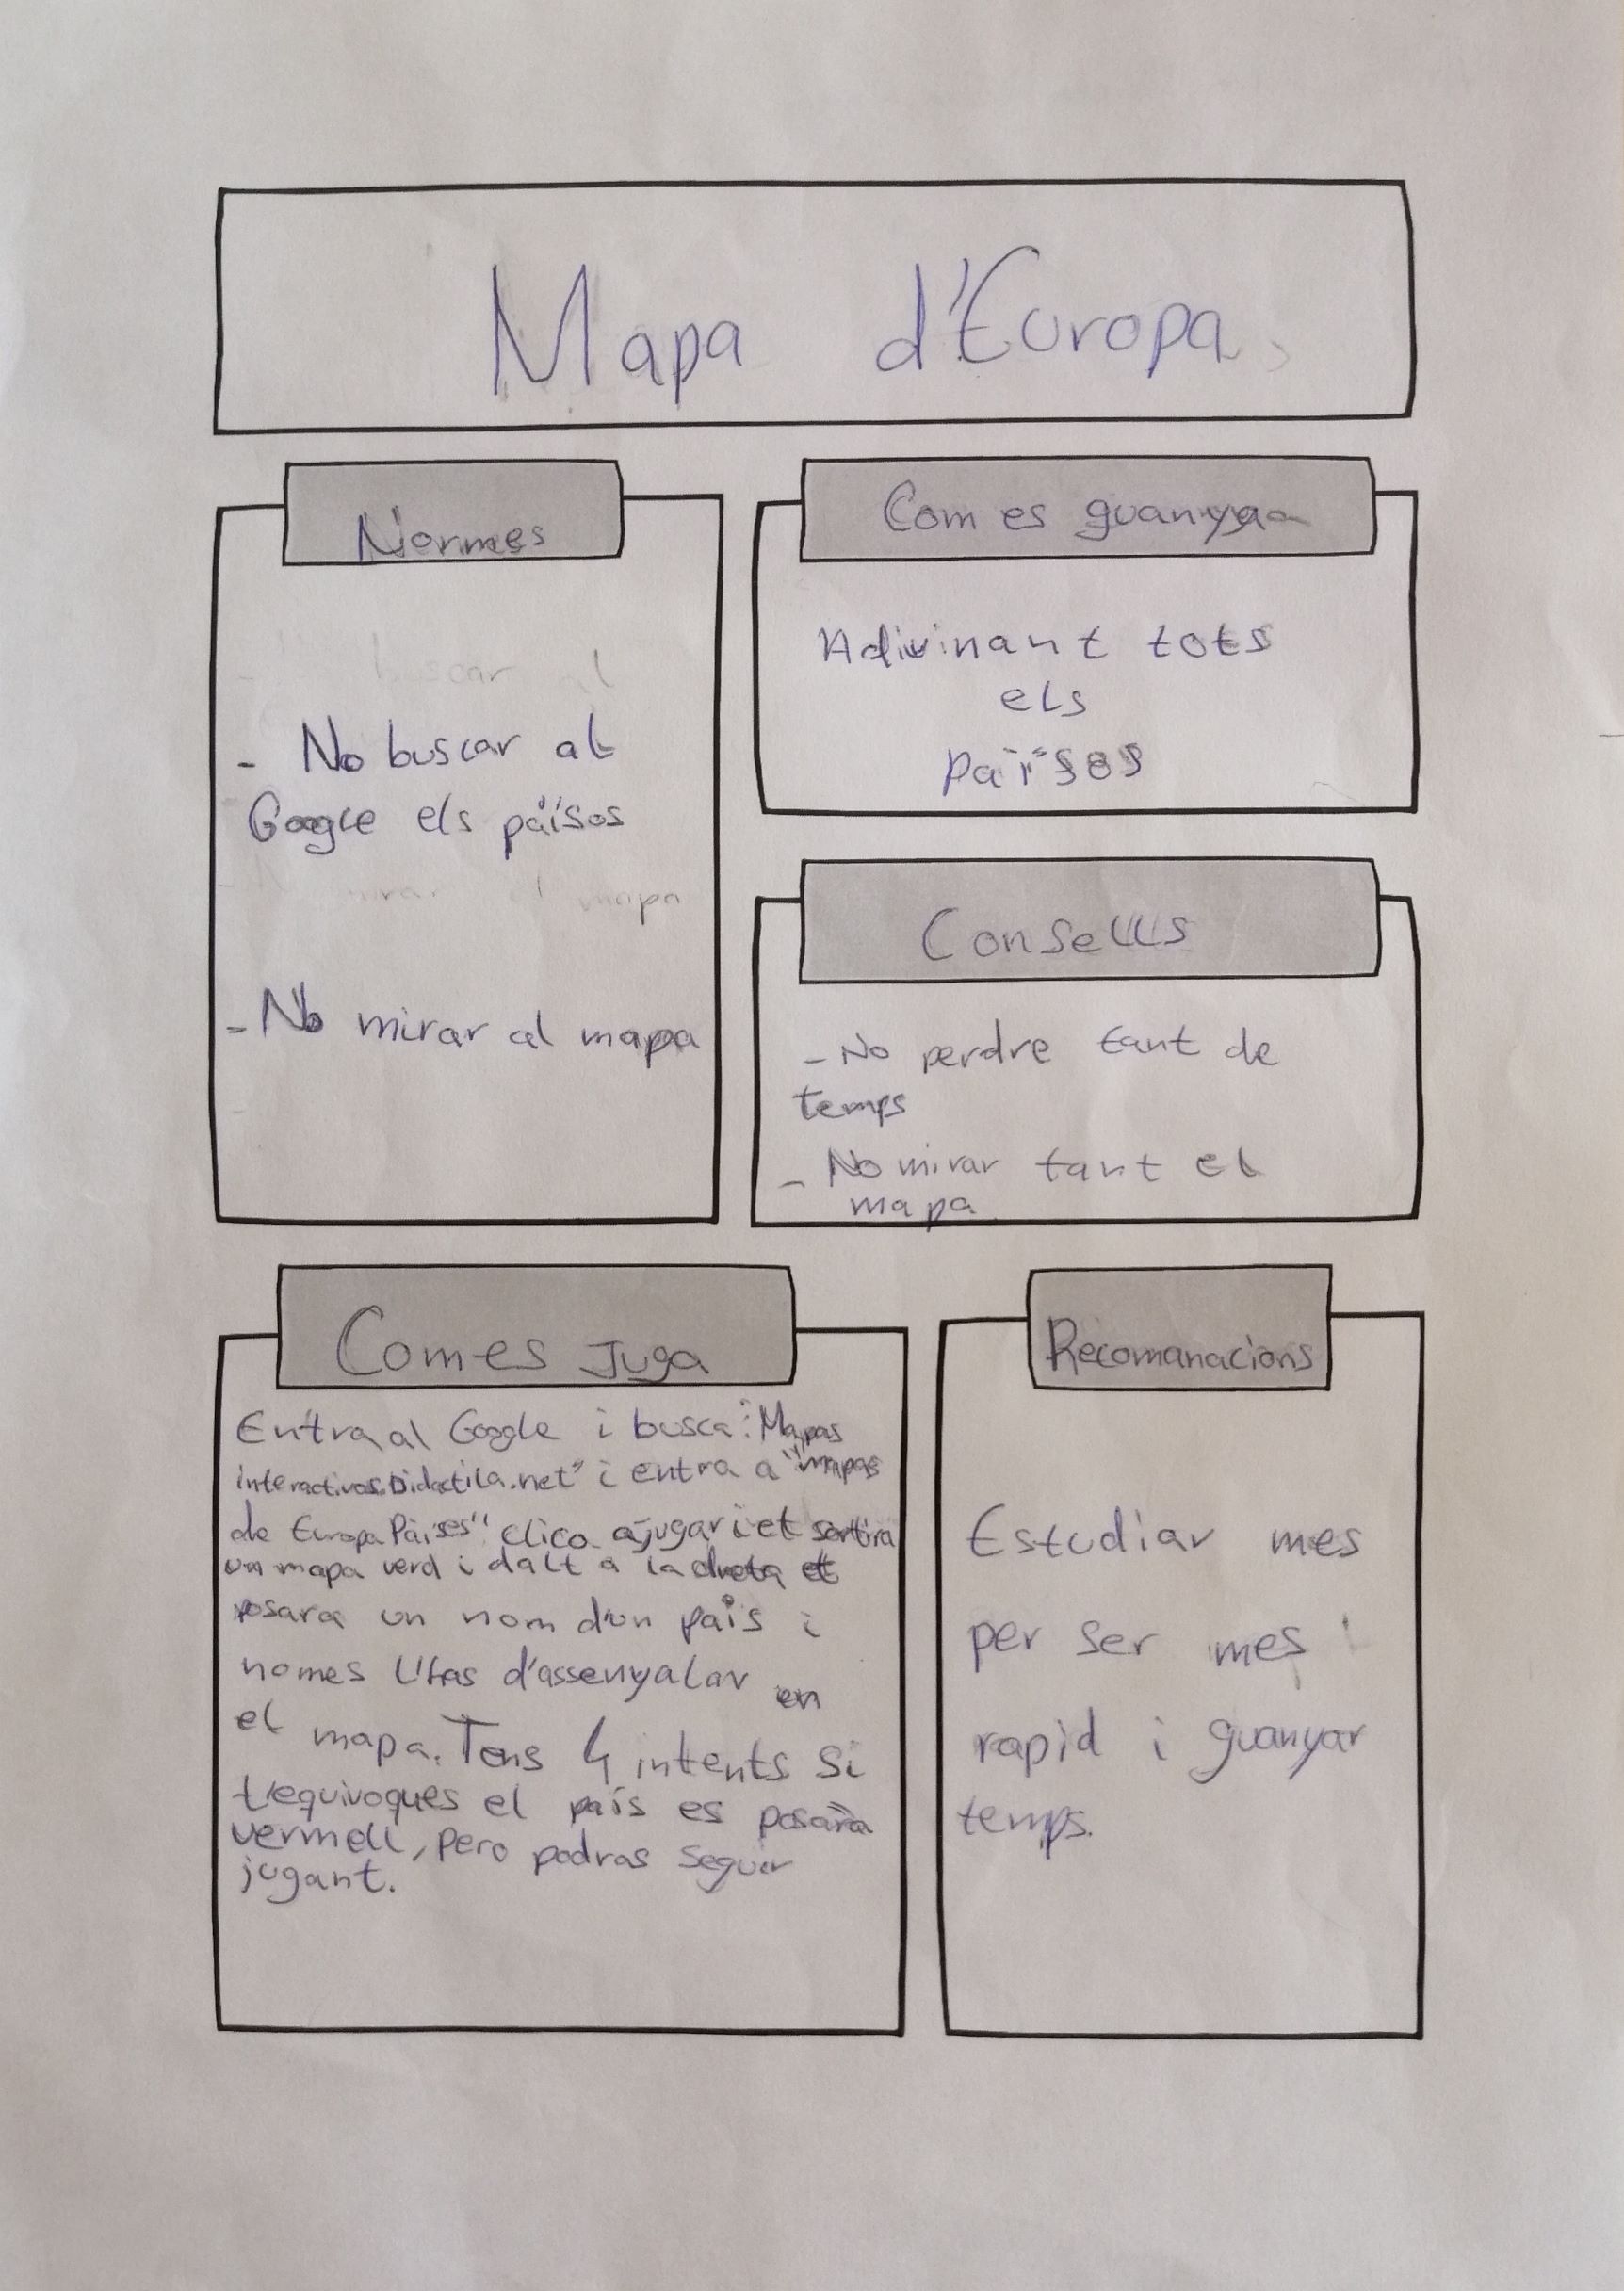 Mapa d'Europa
Normes
- No buscar al
Google els països
- No mirar al mapa
Com es guanya
Adivinant tots
els
països
Consells
- No perdre tant de
temps
- No mirar tant el
mapa
Com es Juga
Entra al Google i busca: "Mapas
interactivos.Didactica.net" i entra a "mapas
de Europa Païses" clico a jugar i et sortira
un mapa verd i dalt a la dreta et
posara un nom d'un país i
nomes l'has d'assenyalar en
el mapa. Tens 4 intents si
t'equivoques el país es posarà
vermell, pero podras seguir
jugant.
Recomanacions
Estudiar mes
per ser mes
rapid i guanyar
temps.